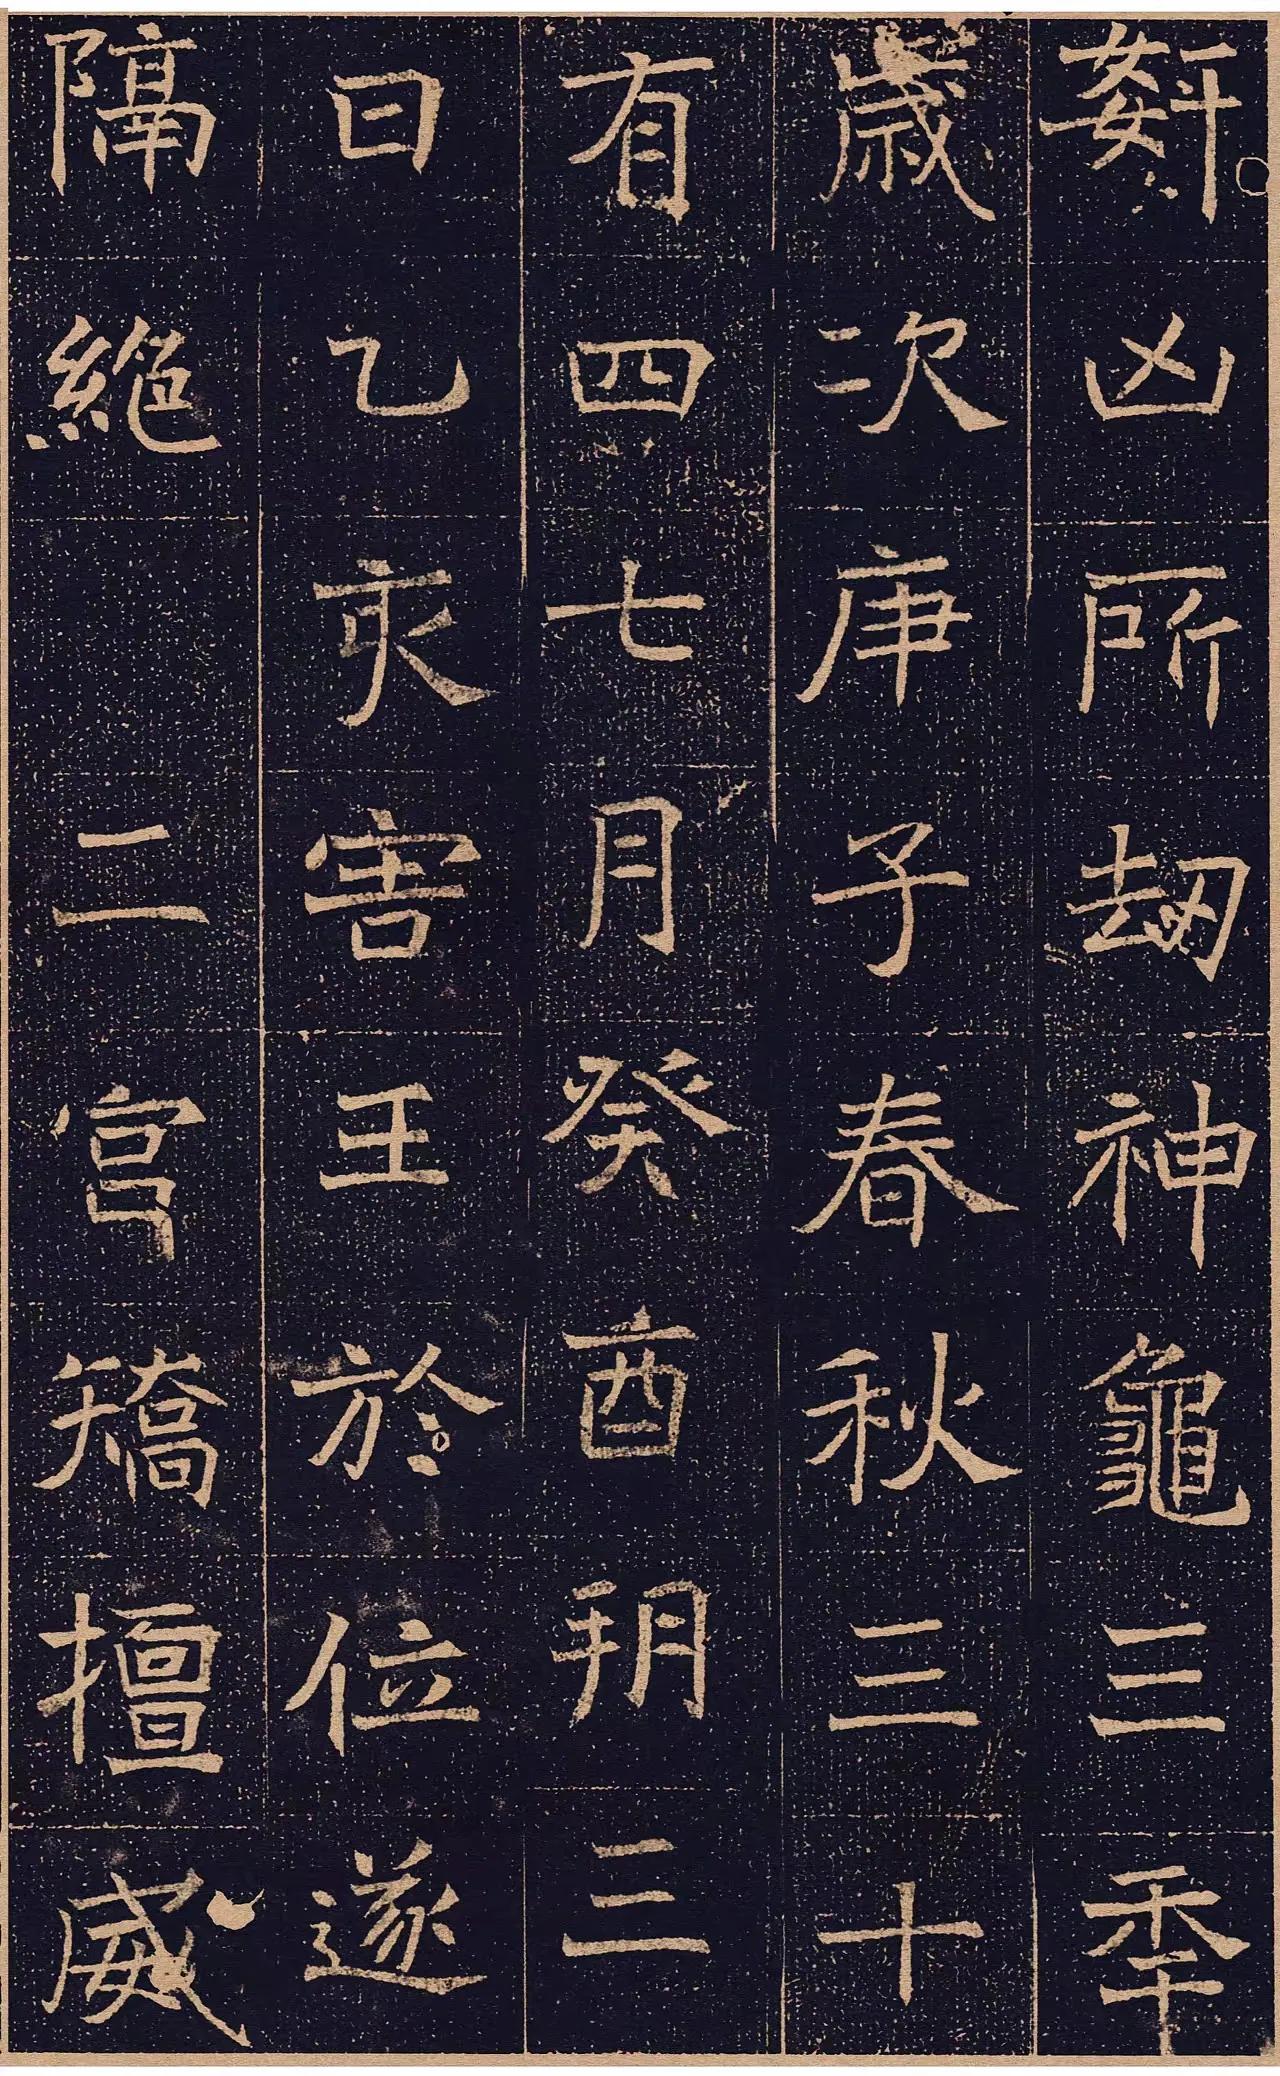 姧凶所刼神龜三秊
歲次庚子春秋三十
有四七月癸酉朔三
日乙亥害王於位遂
隔絶　二宮矯擅威